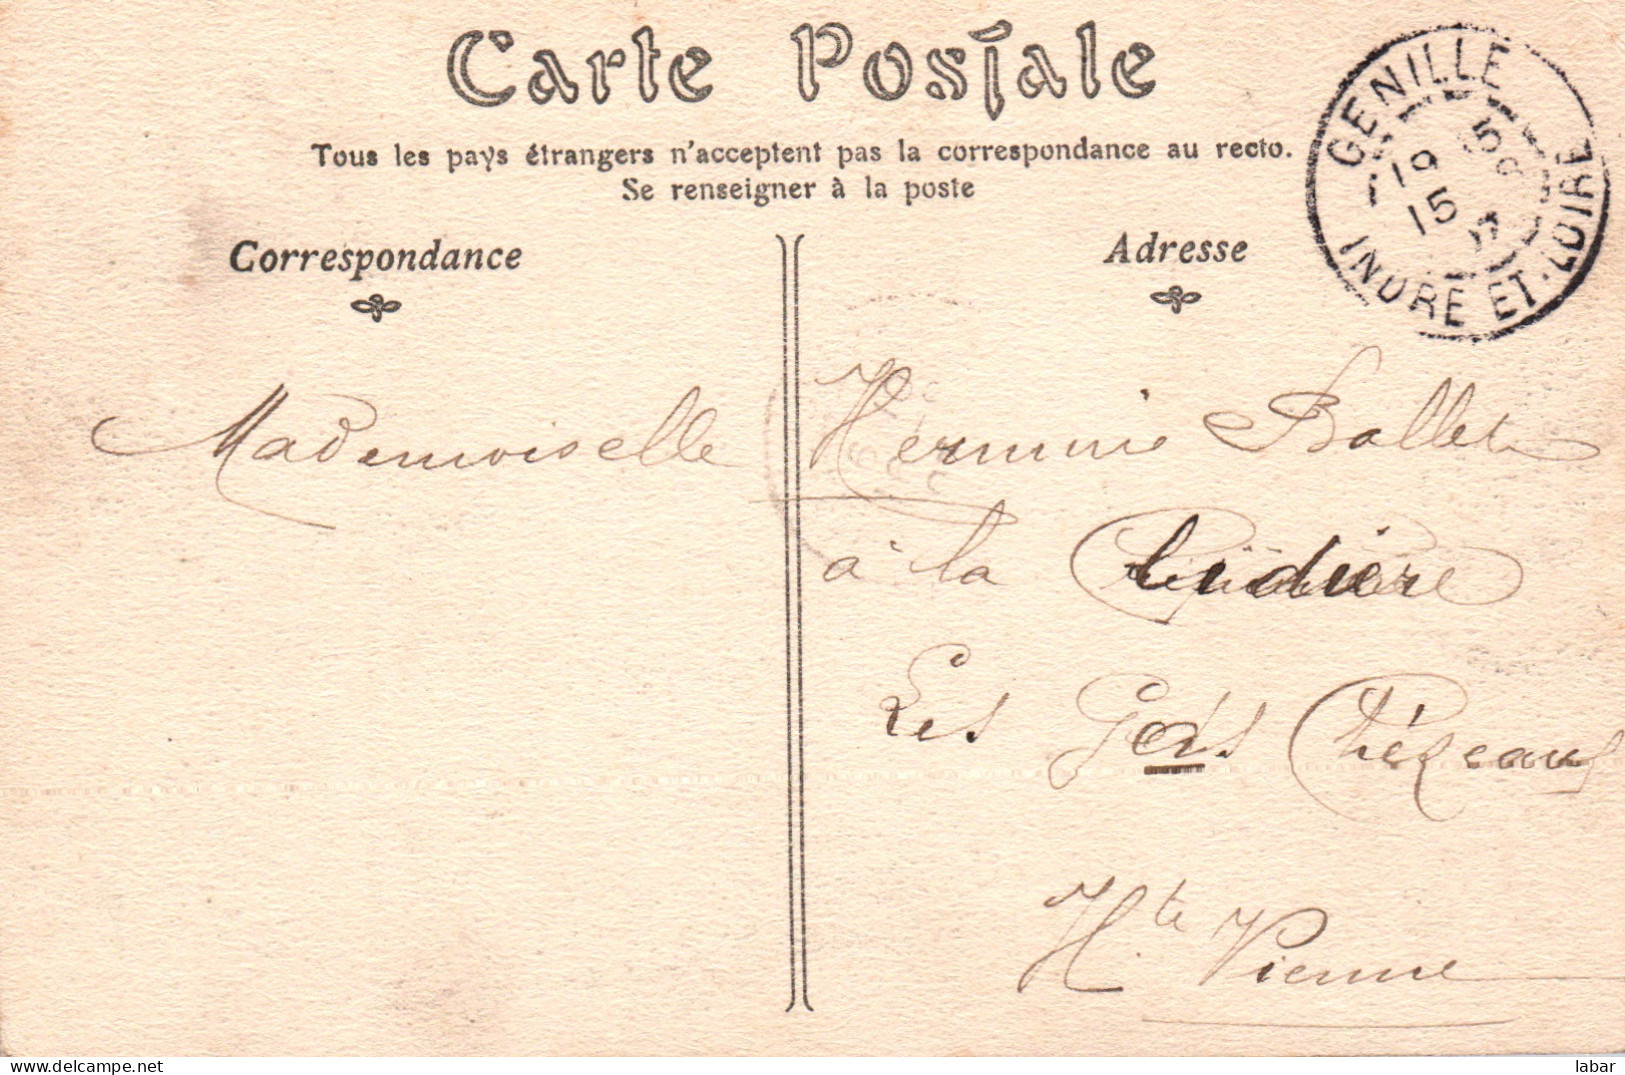 Carte Postale
Tous les pays étrangers n'acceptent pas la correspondance au recto.
Se renseigner à la poste
Correspondance
Adresse
GENILLE
19
15
INDRE ET-LOIRE
Mademoiselle Herminie Ballet
à la
Les Gds Chézeaux
Hte Vienne
delcampe.net
labar